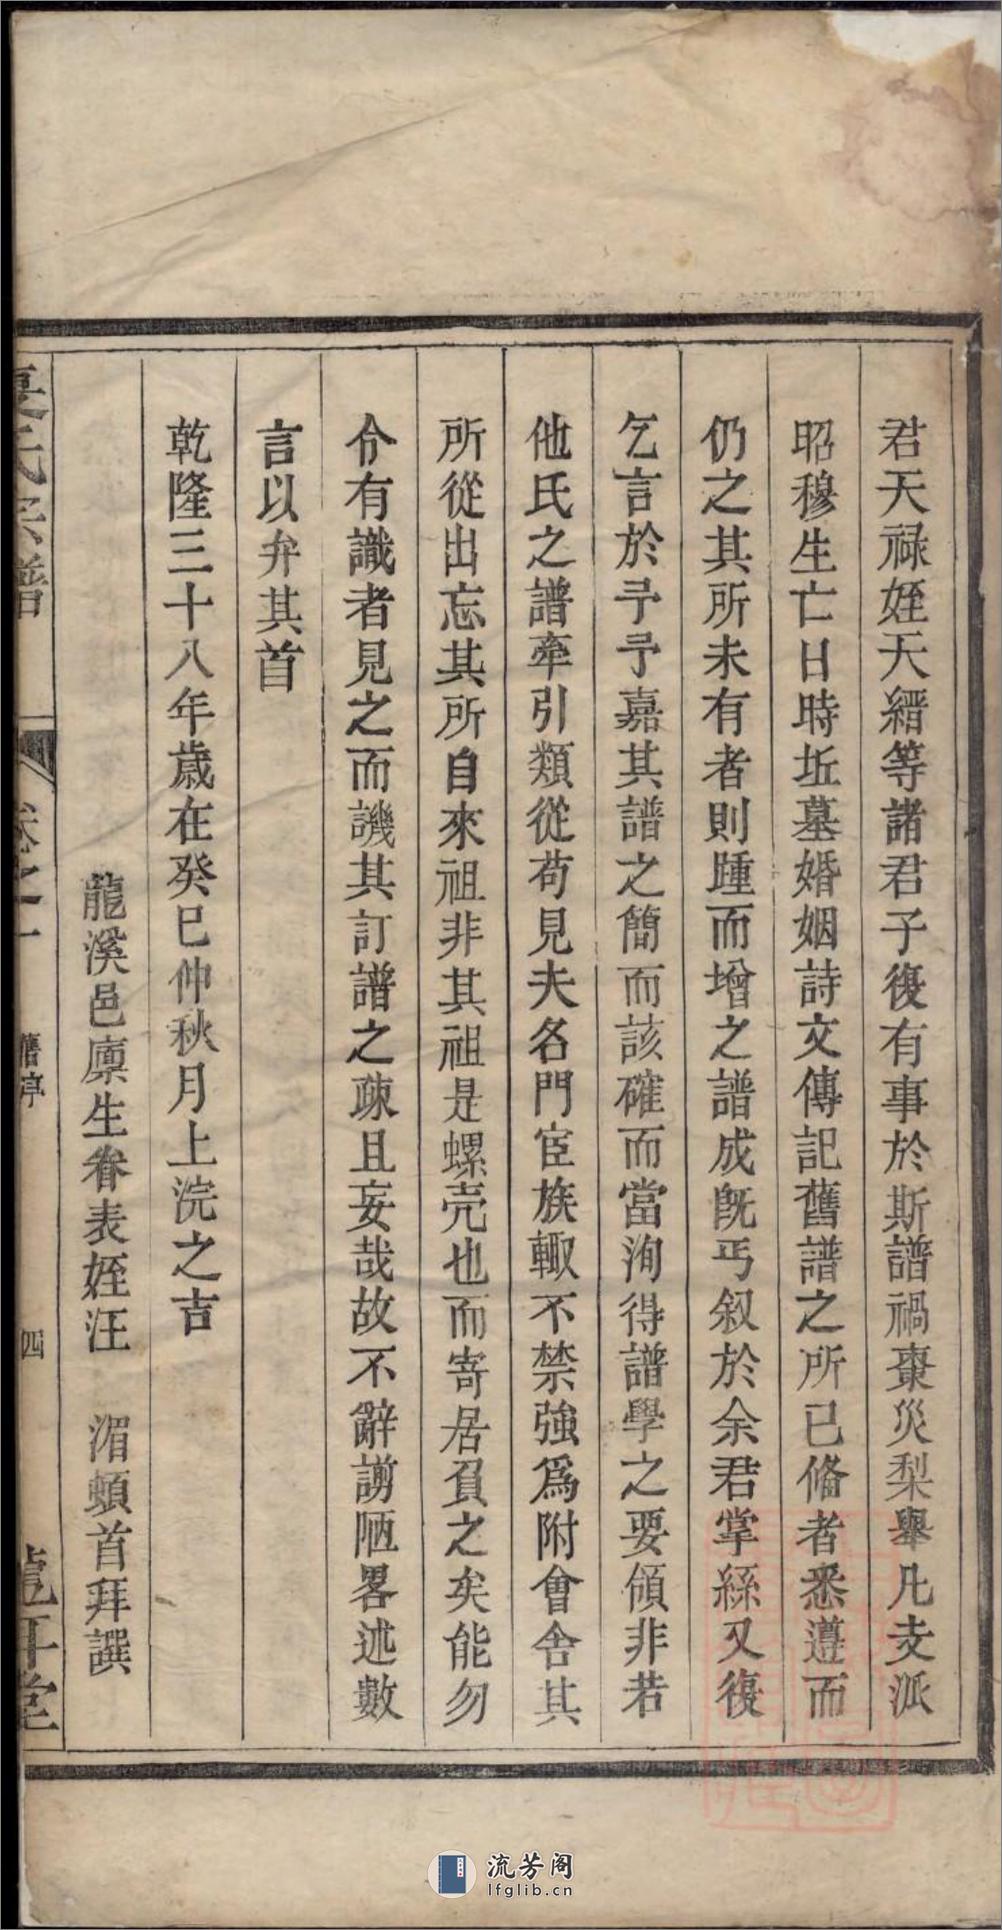 君天祿姪天縉等諸君子復有事於斯譜禍棗災梨舉凡支派
昭穆生亡日時坵墓婚姻詩文傳記舊譜之所已俻者悉遵而
仍之其所未有者則踵而增之譜成旣丐叙於余君掌絲又復
乞言於予予嘉其譜之簡而該確而當洵得譜學之要領非若
他氏之譜牽引類從苟見夫名門宦族輙不禁強爲附會舍其
所從出忘其所自來祖非其祖是螺壳也而寄居負之矣能勿
令有識者見之而譏其訂譜之疎且妄哉故不辭謭陋畧述數
言以弁其首
乾隆三十八年歲在癸巳仲秋月上浣之吉
龍溪邑廪生眷表姪汪 湄頓首拜譔
氏宗譜
卷之一
舊序
四
堂
流芳阁
lfglib.cn